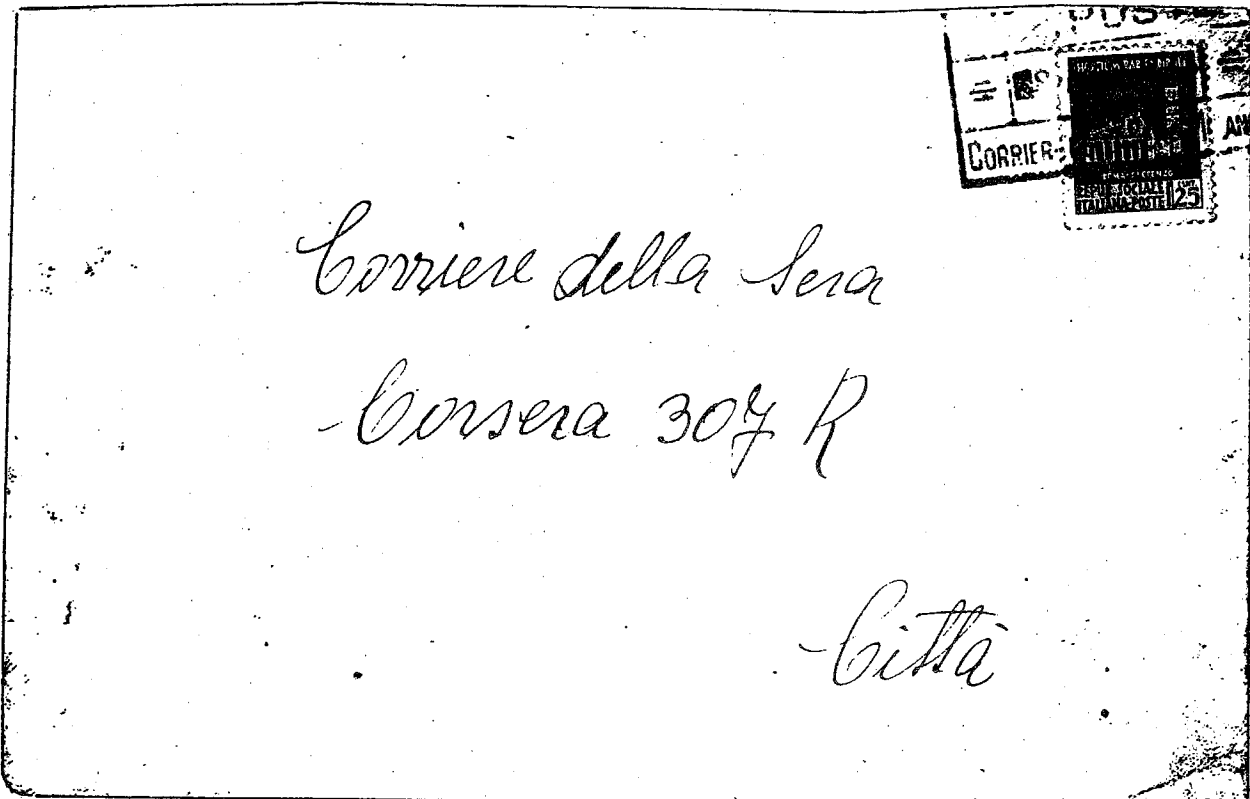 POS
CORRIER
AN
REPUB. SOCIALE
ITALIANA-POSTE
25
Corriere della Sera
Corsera 307 R
Città